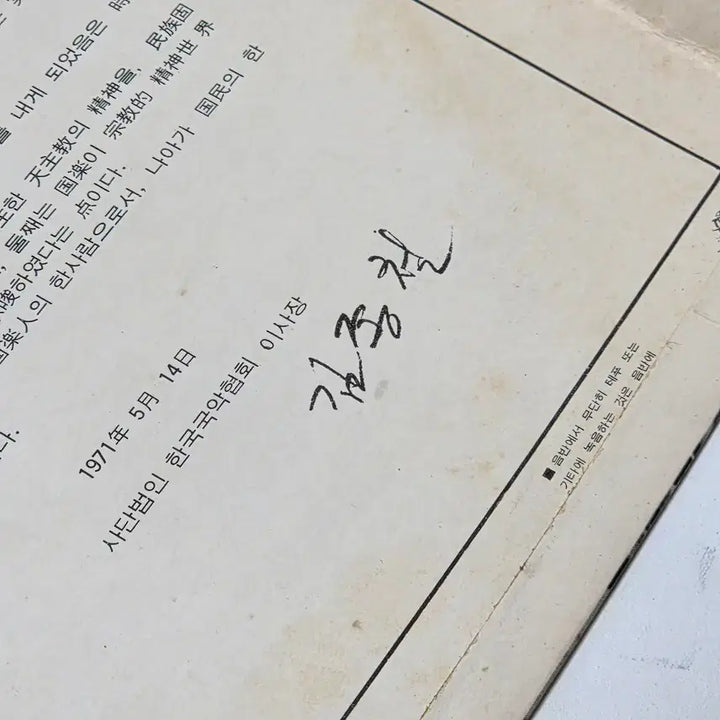 내게 되었음은 時
또한 天主教의 精神을, 民族固
둘째는 国楽이 宗教的 精神世界
하였다는 点이다.
国楽人의 한사람으로서, 나아가 国民의 한
다.
1971年 5月 14日
사단법인 한국국악협회 이사장
김종철
■ 음반에서 무단히 테푸 또는
기타에 녹음하는 것은 음반에